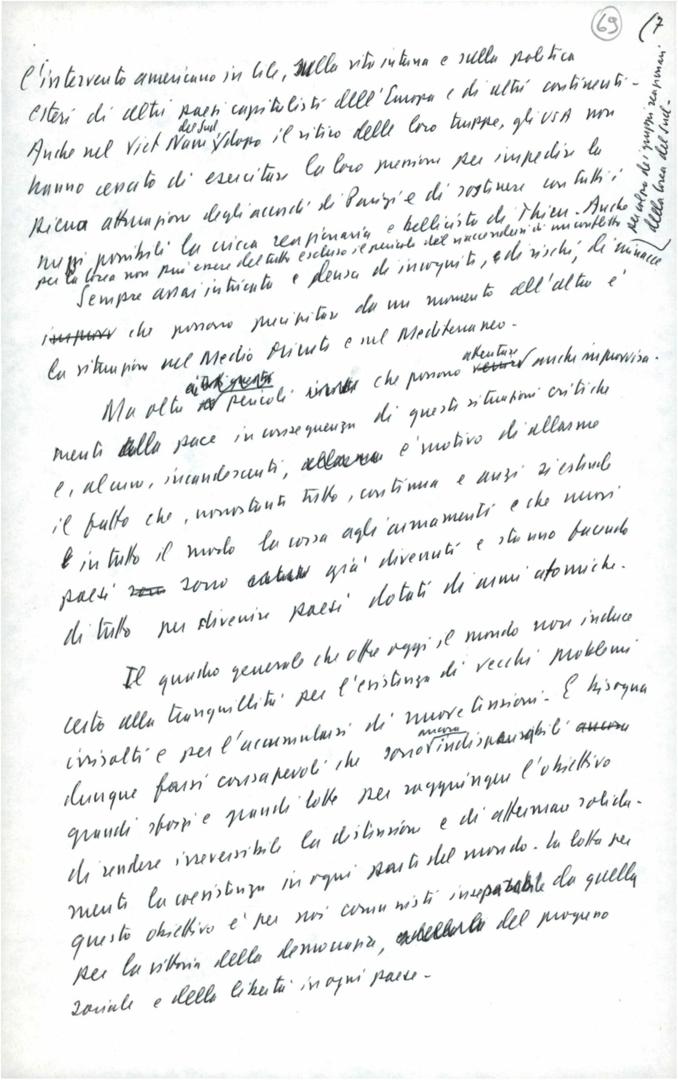 69
(7
l'intervento americano in Cile, sulla vita interna e sulla politica
estera di altri paesi capitalisti dell'Europa e di altri continenti.
Anche nel Viet Nam del Sud, dopo il ritiro delle loro truppe, gli USA non
hanno cessato di esercitare la loro pressione per impedire la
piena attuazione degli accordi di Parigi e di sostenere con tutti i
mezzi possibili la cricca reazionaria e bellicista di Thieu. Anche
per la Corea non può essere del tutto escluso il pericolo del riaccendersi di un conflitto
per colpa dei gruppi reazionari
della Corea del Sud.
Sempre assai intricata e densa di incognite, e di rischi, di minacce
che possono precipitare da un momento all'altro è
la situazione nel Medio Oriente e nel Mediterraneo.
Ma oltre ai pericoli che possono attentare anche improvvisa-
mente alla pace in conseguenza di queste situazioni critiche
e, alcune, incandescenti, è motivo di allarme
il fatto che, nonostante tutto, continua e anzi si estende
in tutto il mondo la corsa agli armamenti e che nuovi
paesi sono già divenuti e stanno facendo
di tutto per divenire paesi dotati di armi atomiche.
Il quadro generale che offre oggi il mondo non induce
certo alla tranquillità per l'esistenza di vecchi problemi
irrisolti e per l'accumularsi di nuove tensioni. E bisogna
dunque farsi consapevoli che sono ancora indispensabili
grandi sforzi e grandi lotte per raggiungere l'obiettivo
di rendere irreversibile la distensione e di affermare solida-
mente la coesistenza in ogni parte del mondo. La lotta per
questo obiettivo è per noi comunisti inseparabile da quella
per la vittoria della democrazia, del progresso
sociale e della libertà in ogni paese.